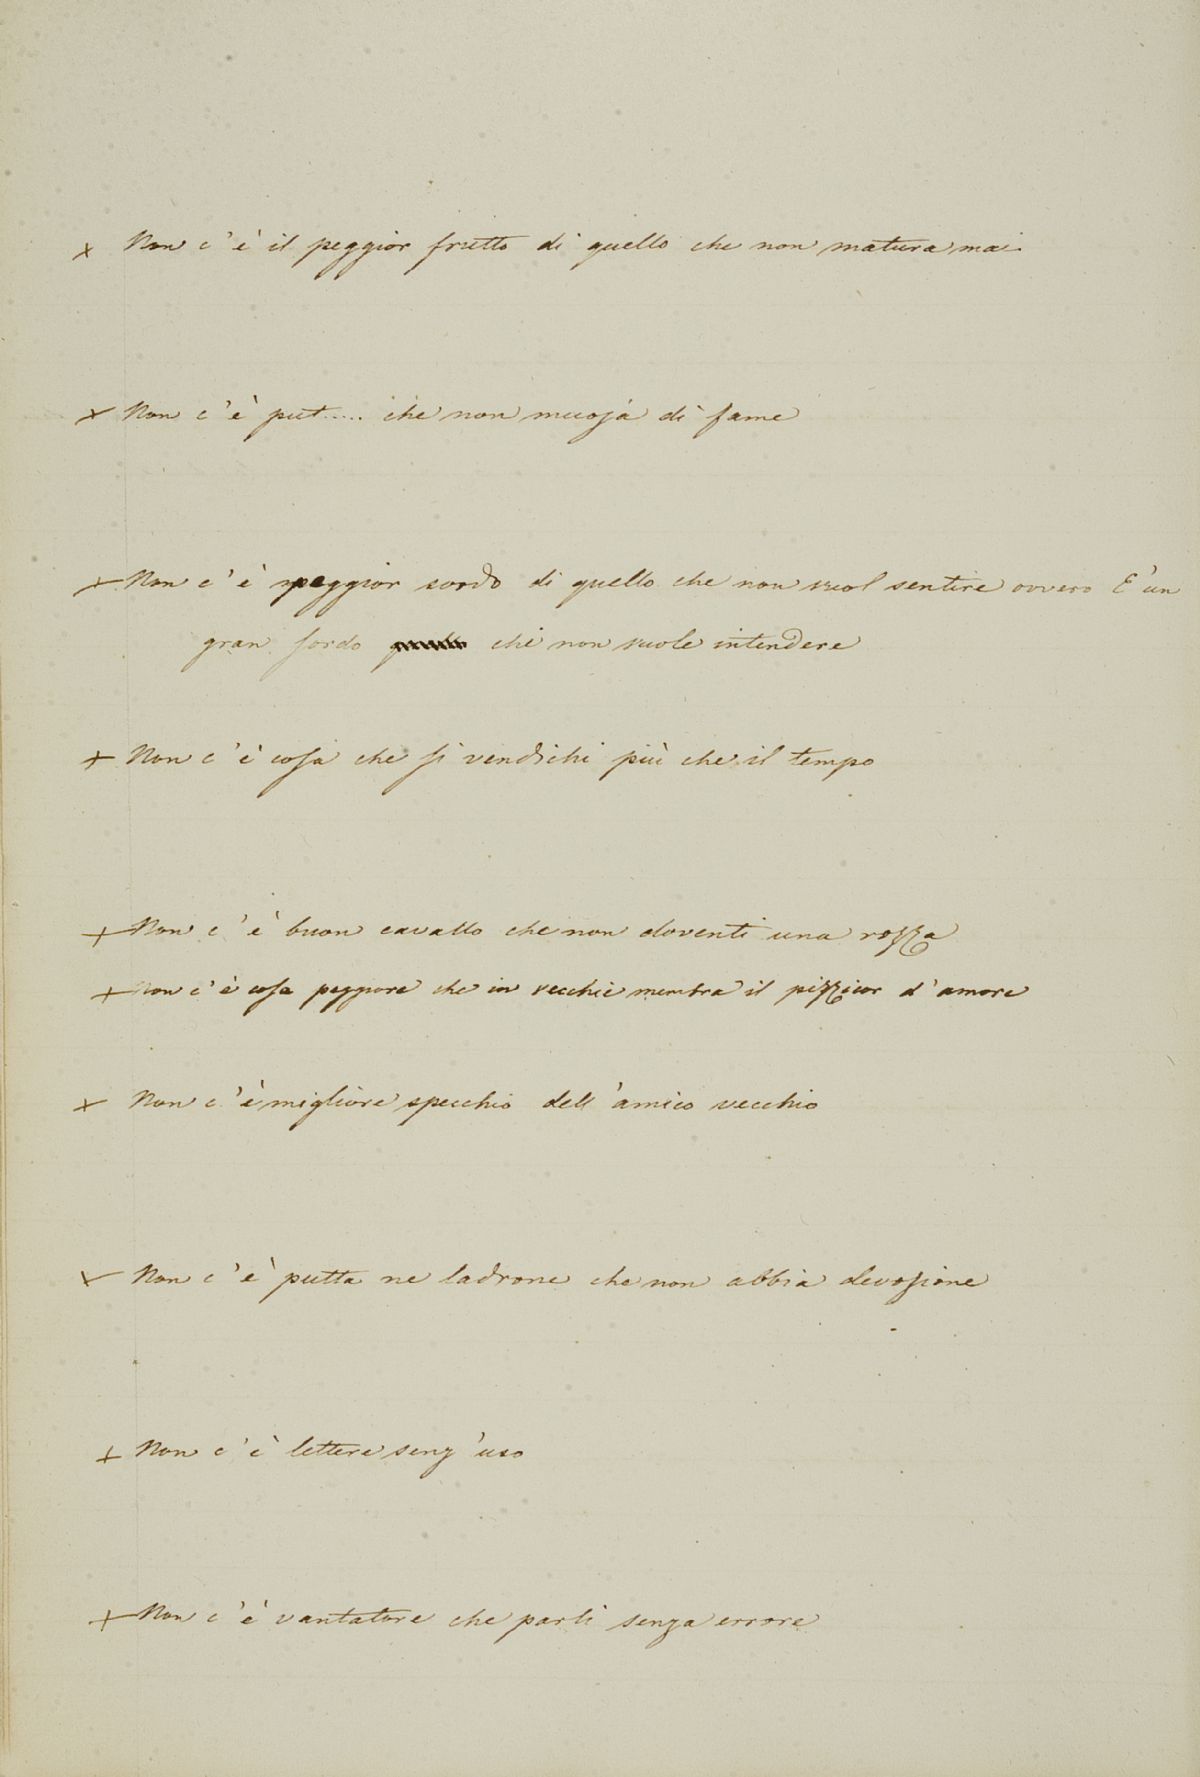 x Non c'è il peggior frutto di quello che non matura mai
x Non c'è put..... che non muoja di fame
x Non c'è peggior sordo di quello che non vuol sentire ovvero E' un
gran sordo chi non vuole intendere
x Non c'è cosa che si vendichi più che il tempo
x Non c'è buon cavallo che non doventi una rozza
x Non c'è cosa peggiore che in vecchie membra il pizzicor d'amore
x Non c'è migliore specchio dell'amico vecchio
x Non c'è putta ne ladrone che non abbia devozione
x Non c'è lettere senz'uso
x Non c'è vantatore che parli senza errore